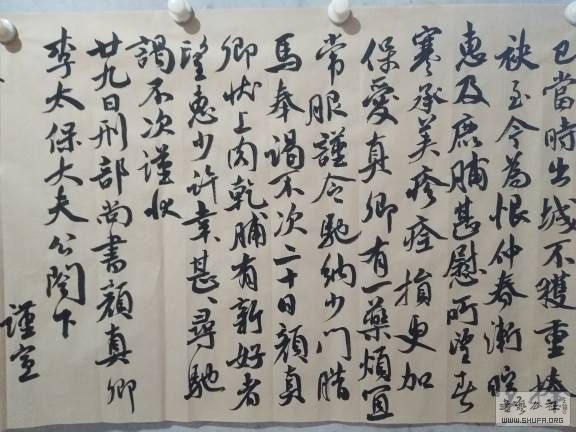 已當時出城不獲重捧
袂至今為恨仲春漸暄
惠及鹿脯甚慰所望春
寒承美疹痊損更加
保愛真卿有一藥煩宜
常服謹令馳納少門腊
馬奉謁不次二十日顏真
卿狀上肉乾脯有新好者
望惠少許幸甚、尋馳
謁不次謹狀
廿九日刑部尚書顏真卿
李太保大夫公閤下
謹
WWW.SHUFA.ORG